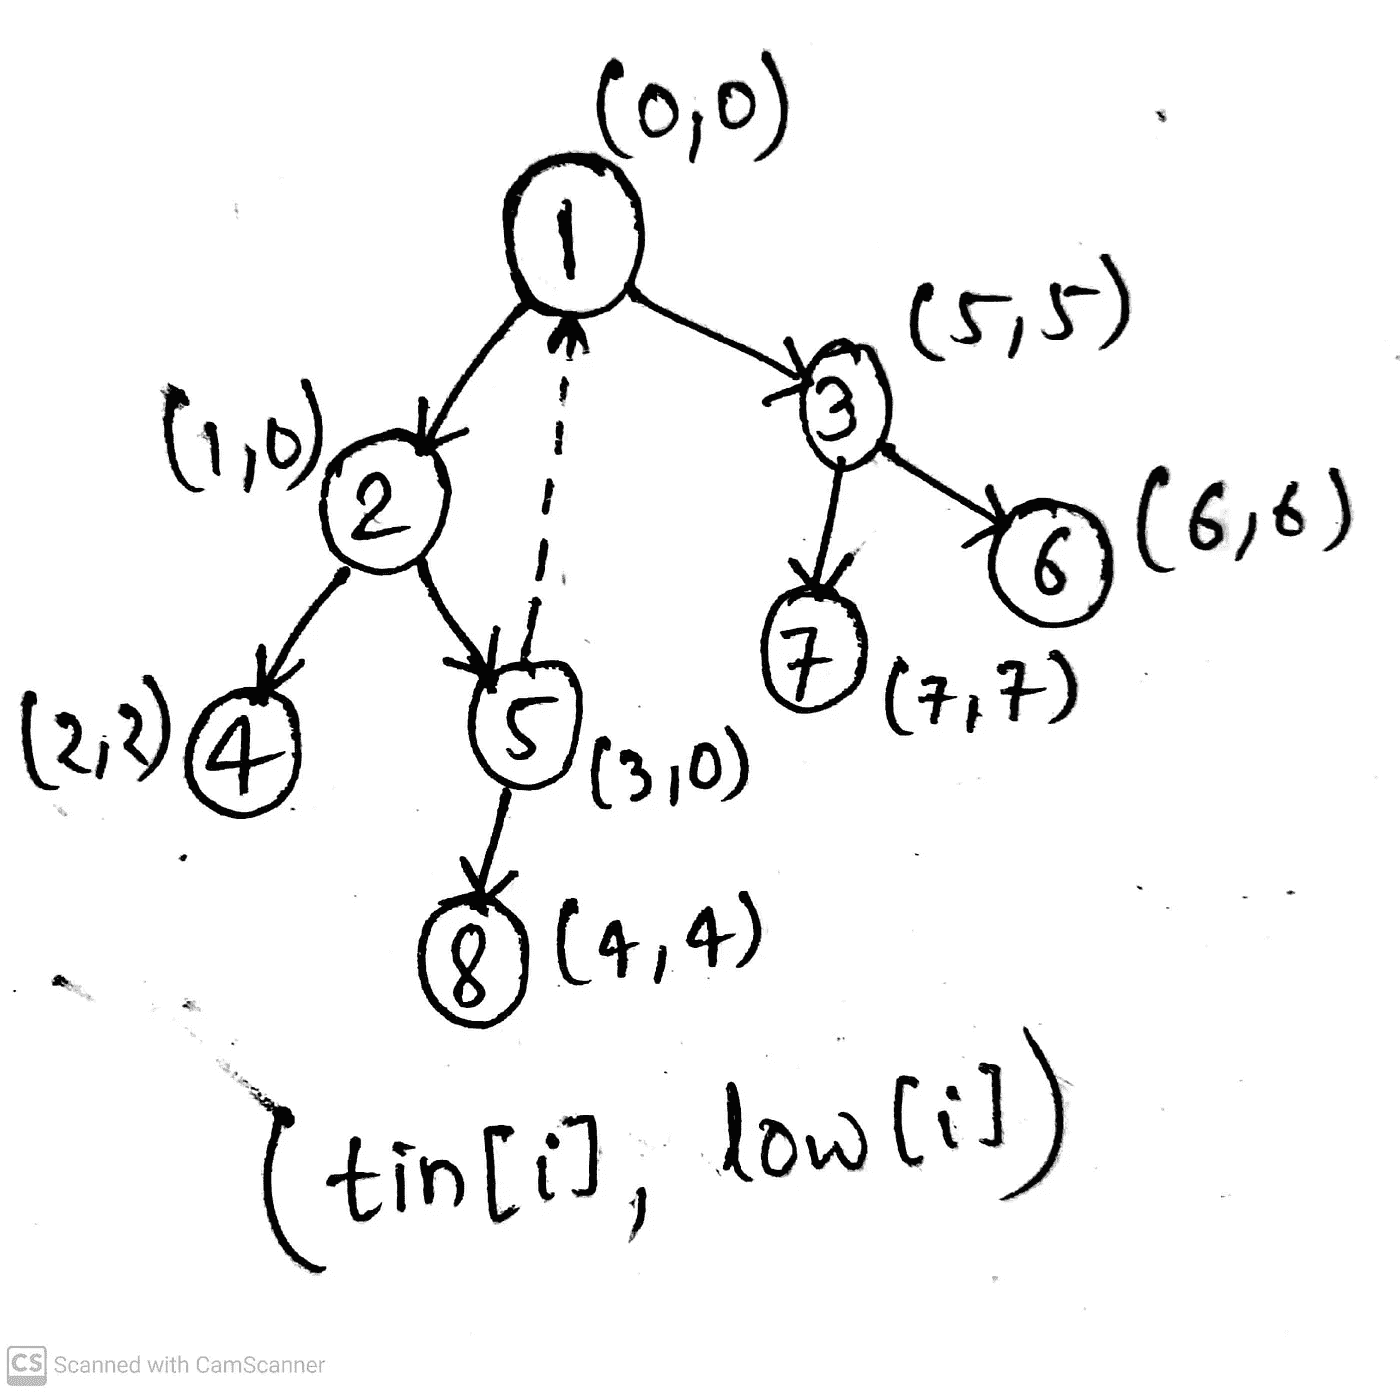 (0,0)
1
(5,5)
3
(1,0)
2
(6,6)
6
7
(7,7)
(2,2)
4
5
(3,0)
8
(4,4)
(tin[i], low[i])
CS Scanned with CamScanner